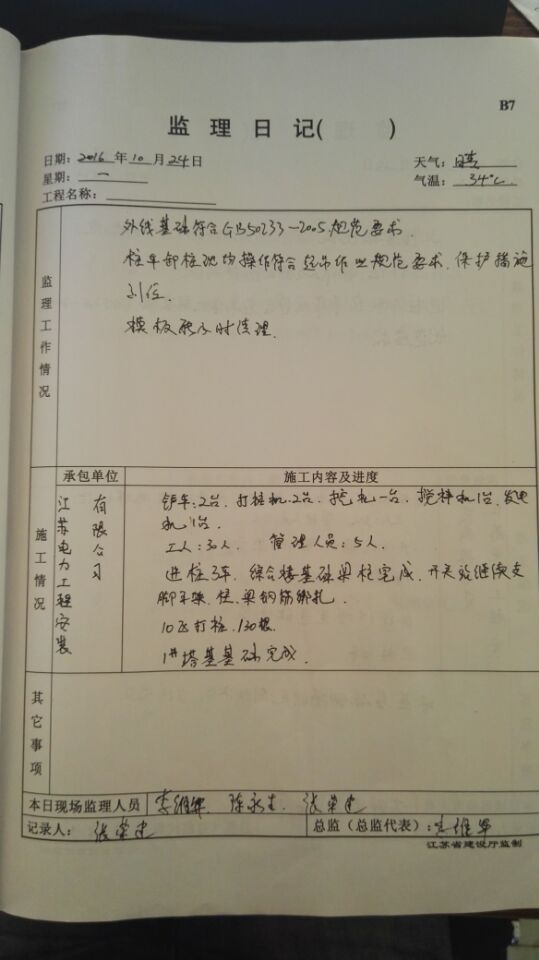 B7
监 理 日 记( )
日期: 2016 年 10 月 24 日
天气: 晴
星期: 一
气温: 34℃
工程名称:
监理工作情况
外线基础符合GB50233-2005规范要求.
桩车卸桩现场操作符合起吊作业规范要求,保护措施
到位.
模板要及时清理.
施工情况
承包单位
施工内容及进度
江苏电力工程安装
有限公司
铲车:2台、打桩机:2台、挖机一台、搅拌机1台、发电
机1台.
工人:30人、 管理人员:5人.
进桩3车、综合楼基础梁柱完成、开关站继续支
脚手架、柱、梁钢筋绑扎.
打桩.130根.
1#塔基基础完成.
其它事项
本日现场监理人员
陈永生、张荣建
记录人: 张荣建
总监(总监代表):
江苏省建设厅监制